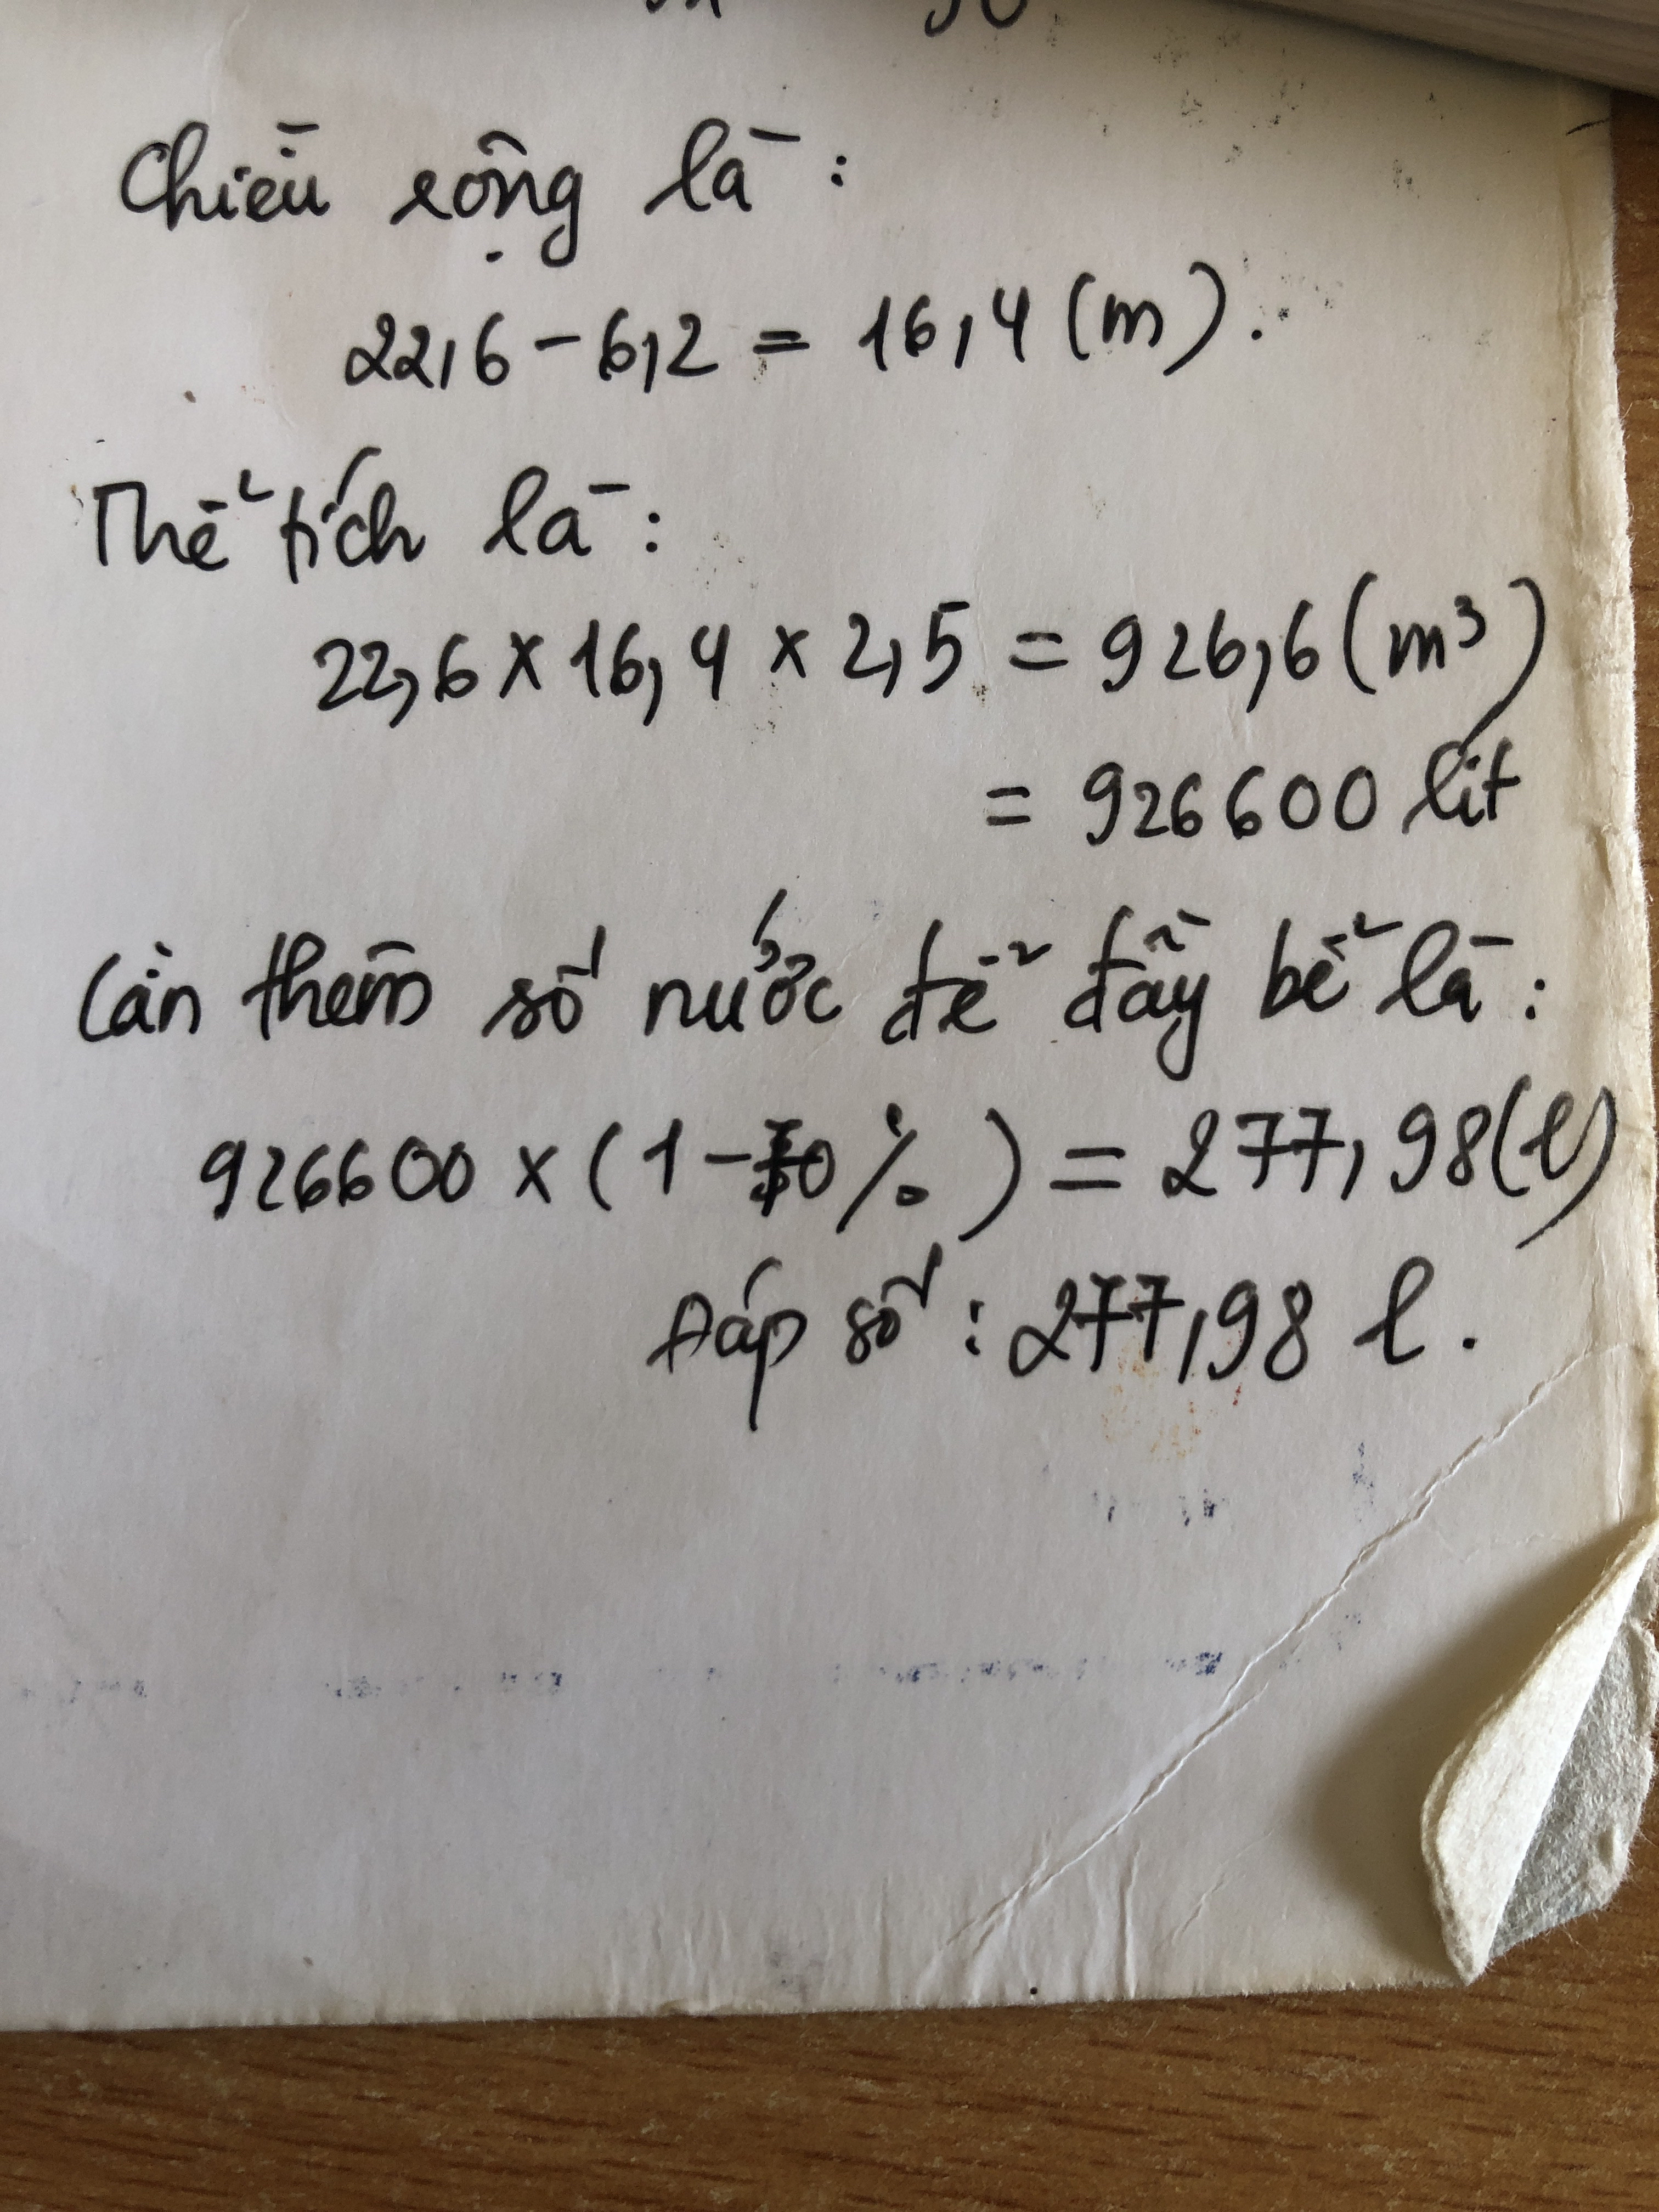 Chiều rộng là :
22,6 - 6,2 = 16,4 (m).
Thể tích là :
22,6 x 16,4 x 2,5 = 926,6 (m³)
= 926600 lit
Cần thêm số nước để đầy bể là :
926600 x ( 1 - 70% ) = 277,98 (l)
Đáp số : 277,98 l .